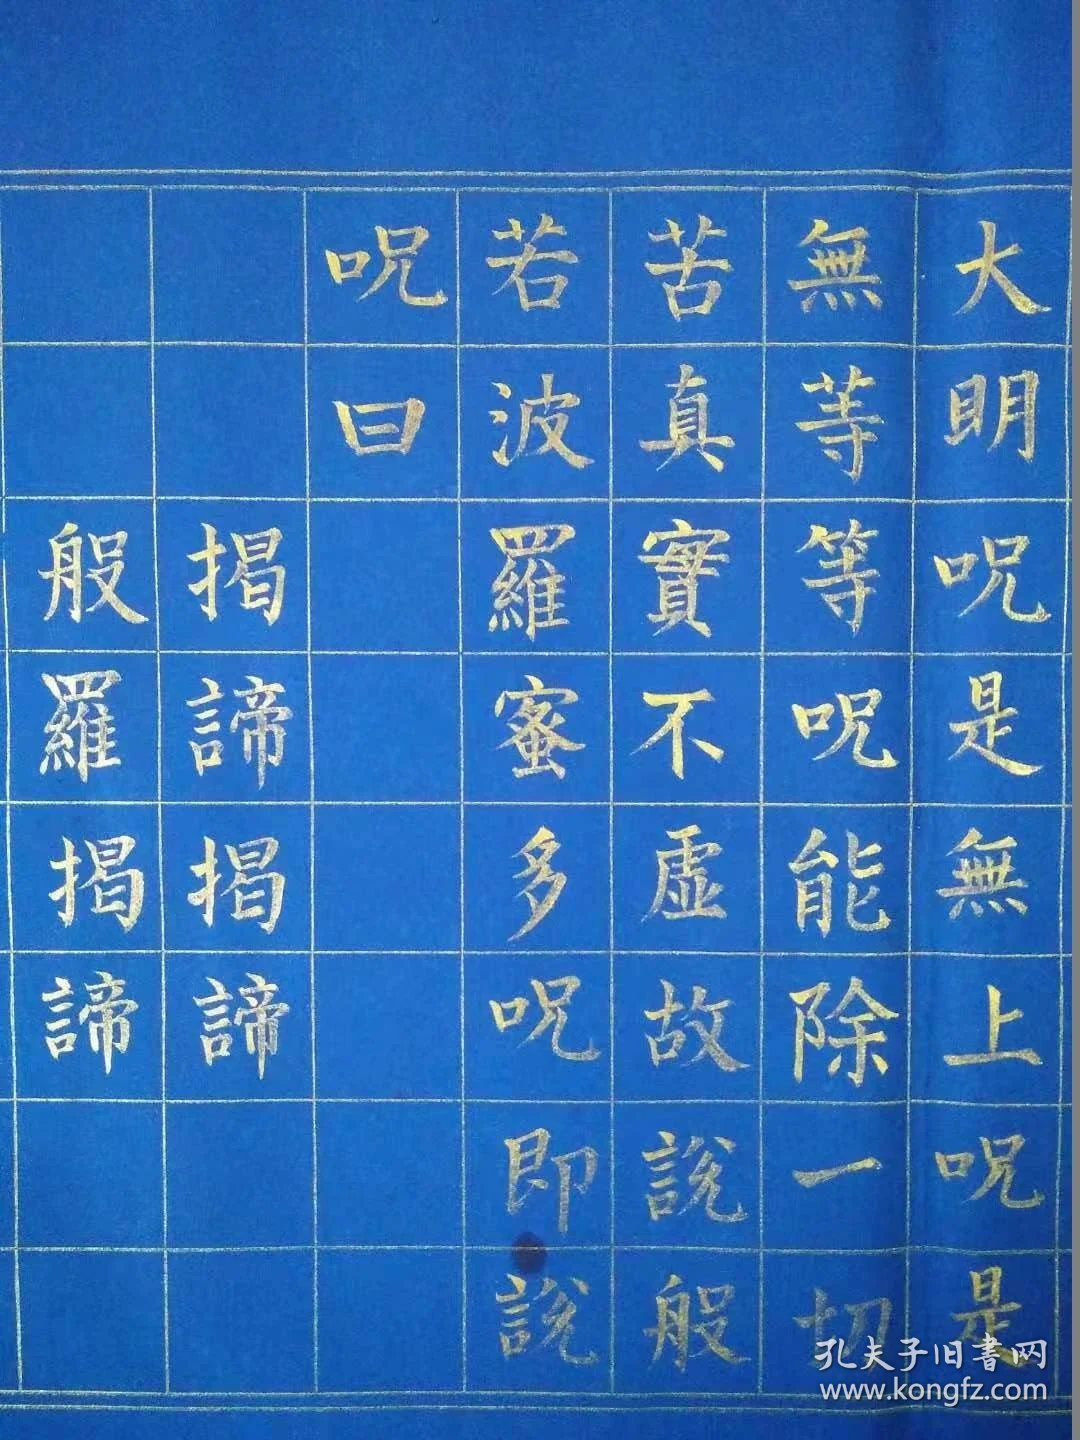 大明呪是無上呪是
無等等呪能除一切
苦真實不虛故說般
若波羅蜜多呪即說
呪曰
揭諦揭諦
般羅揭諦
孔夫子旧書网
www.kongfz.com